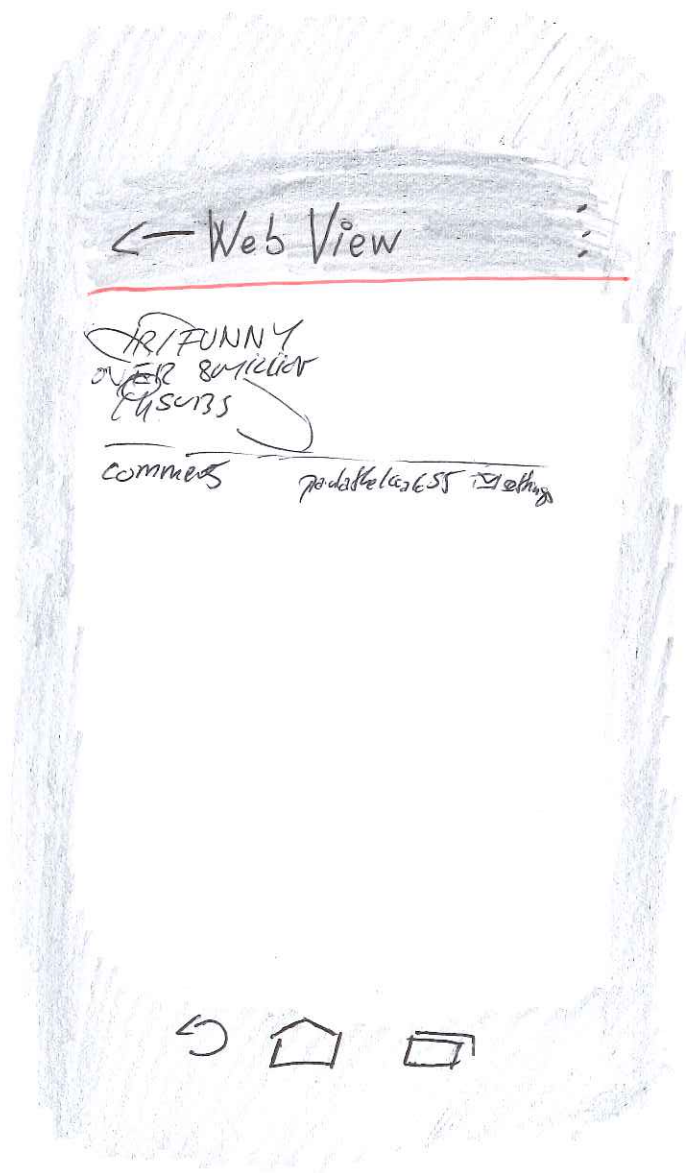 Web View
/R/FUNNY
OVER 8 MILLION
SUBS
comments settings